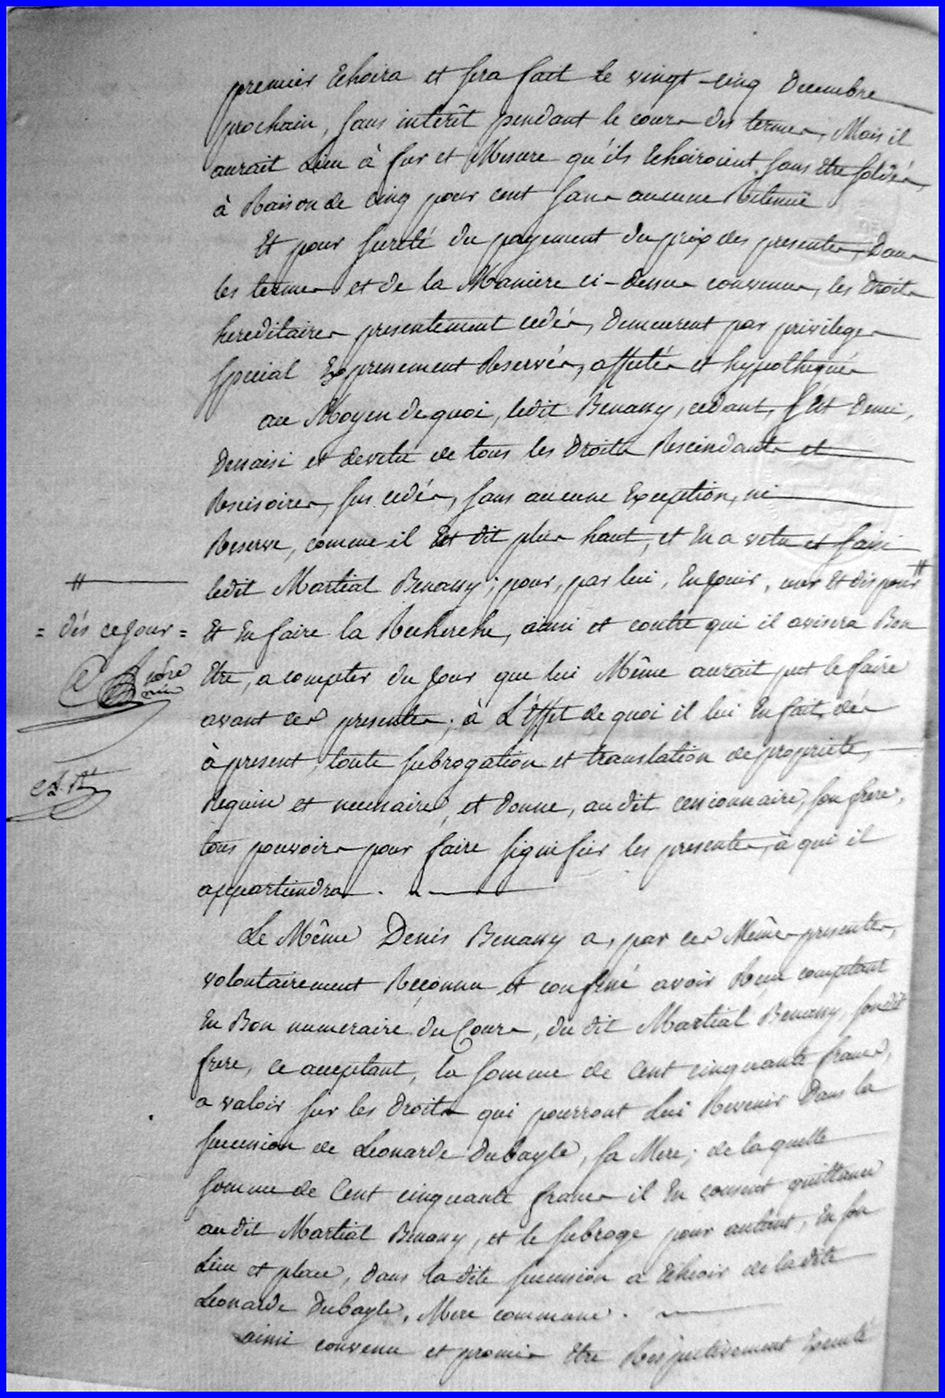 premier Echoira et sera fait le vingt-cinq Decembre
prochain, sans intérêt pendant le cours des termes, Mais il
aurait Lieu à fur et Mesure qu'ils Echoiroient sans Etre soldés,
à Raison de cinq pour cent sans aucune Retenüe
Et pour sureté du payement du prix des presentes, Dans
les termes et de la Maniere ci-dessus convenus, les Droits
hereditaires presentement cedés, Demeurent par privilege
special Expressement Reservés, affectés et hypothequés
au Moyen de quoi, ledit Benassy, cedant, s'est Demi,
Dessaisi et devetu de tous les Droits Rescindants et
Rescisoires, sus cedés, sans aucune Exception, ni
Reserve, comme il Est dit plus haut, et En a vetu et saisi
ledit Martial Benassy; pour, par lui, En jouir, user Et disposer #
#
= dès ce jour =
Et En faire la Recherche, ainsi et contre qui il avisera Bon
Etre, a compter du jour que lui Même aurait put le faire
avant ces presentes; à L'Effet de quoi il lui En fait, dès
à present, toute subrogation et translation de propriété,
Requise et necessaire, et Donne, au dit cessionnaire, son frere,
tous pouvoirs pour faire signifier les presentes, à qui il
appartiendra.
Le Même Denis Benassy a, par ces Mêmes presentes,
volontairement Reconnu et confessé avoir Reçu comptant
En Bon numeraire du Cours, du dit Martial Benassy, son dit
frere, ce acceptant, la somme de Cent cinquante francs,
a valoir sur les Droits qui pourront Lui Revenir Dans la
succession de Leonarde Dubayle, sa Mere; de laquelle
somme de Cent cinquante francs il En consent quittance
au dit Martial Benassy, et le subroge pour autant, En son
Lieu et place, Dans la dite succession a Echoir de la dite
Leonarde Dubayle, Mere commune.
ainsi convenu et promis Etre Respectivement Executé